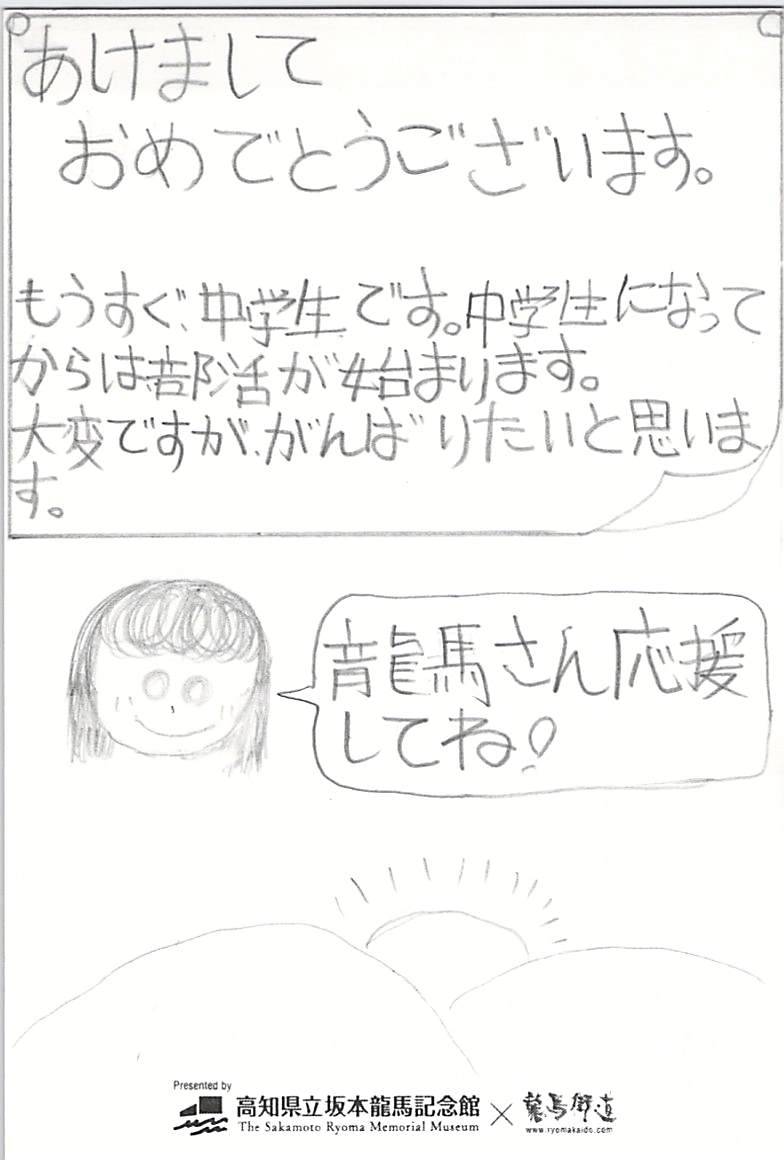 あけまして
おめでとうございます。
もうすぐ、中学生です。中学生になって
からは部活が始まります。
大変ですが、がんばりたいと思いま
す。
龍馬さん応援
してね!
Presented by
高知県立坂本龍馬記念館
The Sakamoto Ryoma Memorial Museum
×
龍馬街道
www.ryomakaido.com